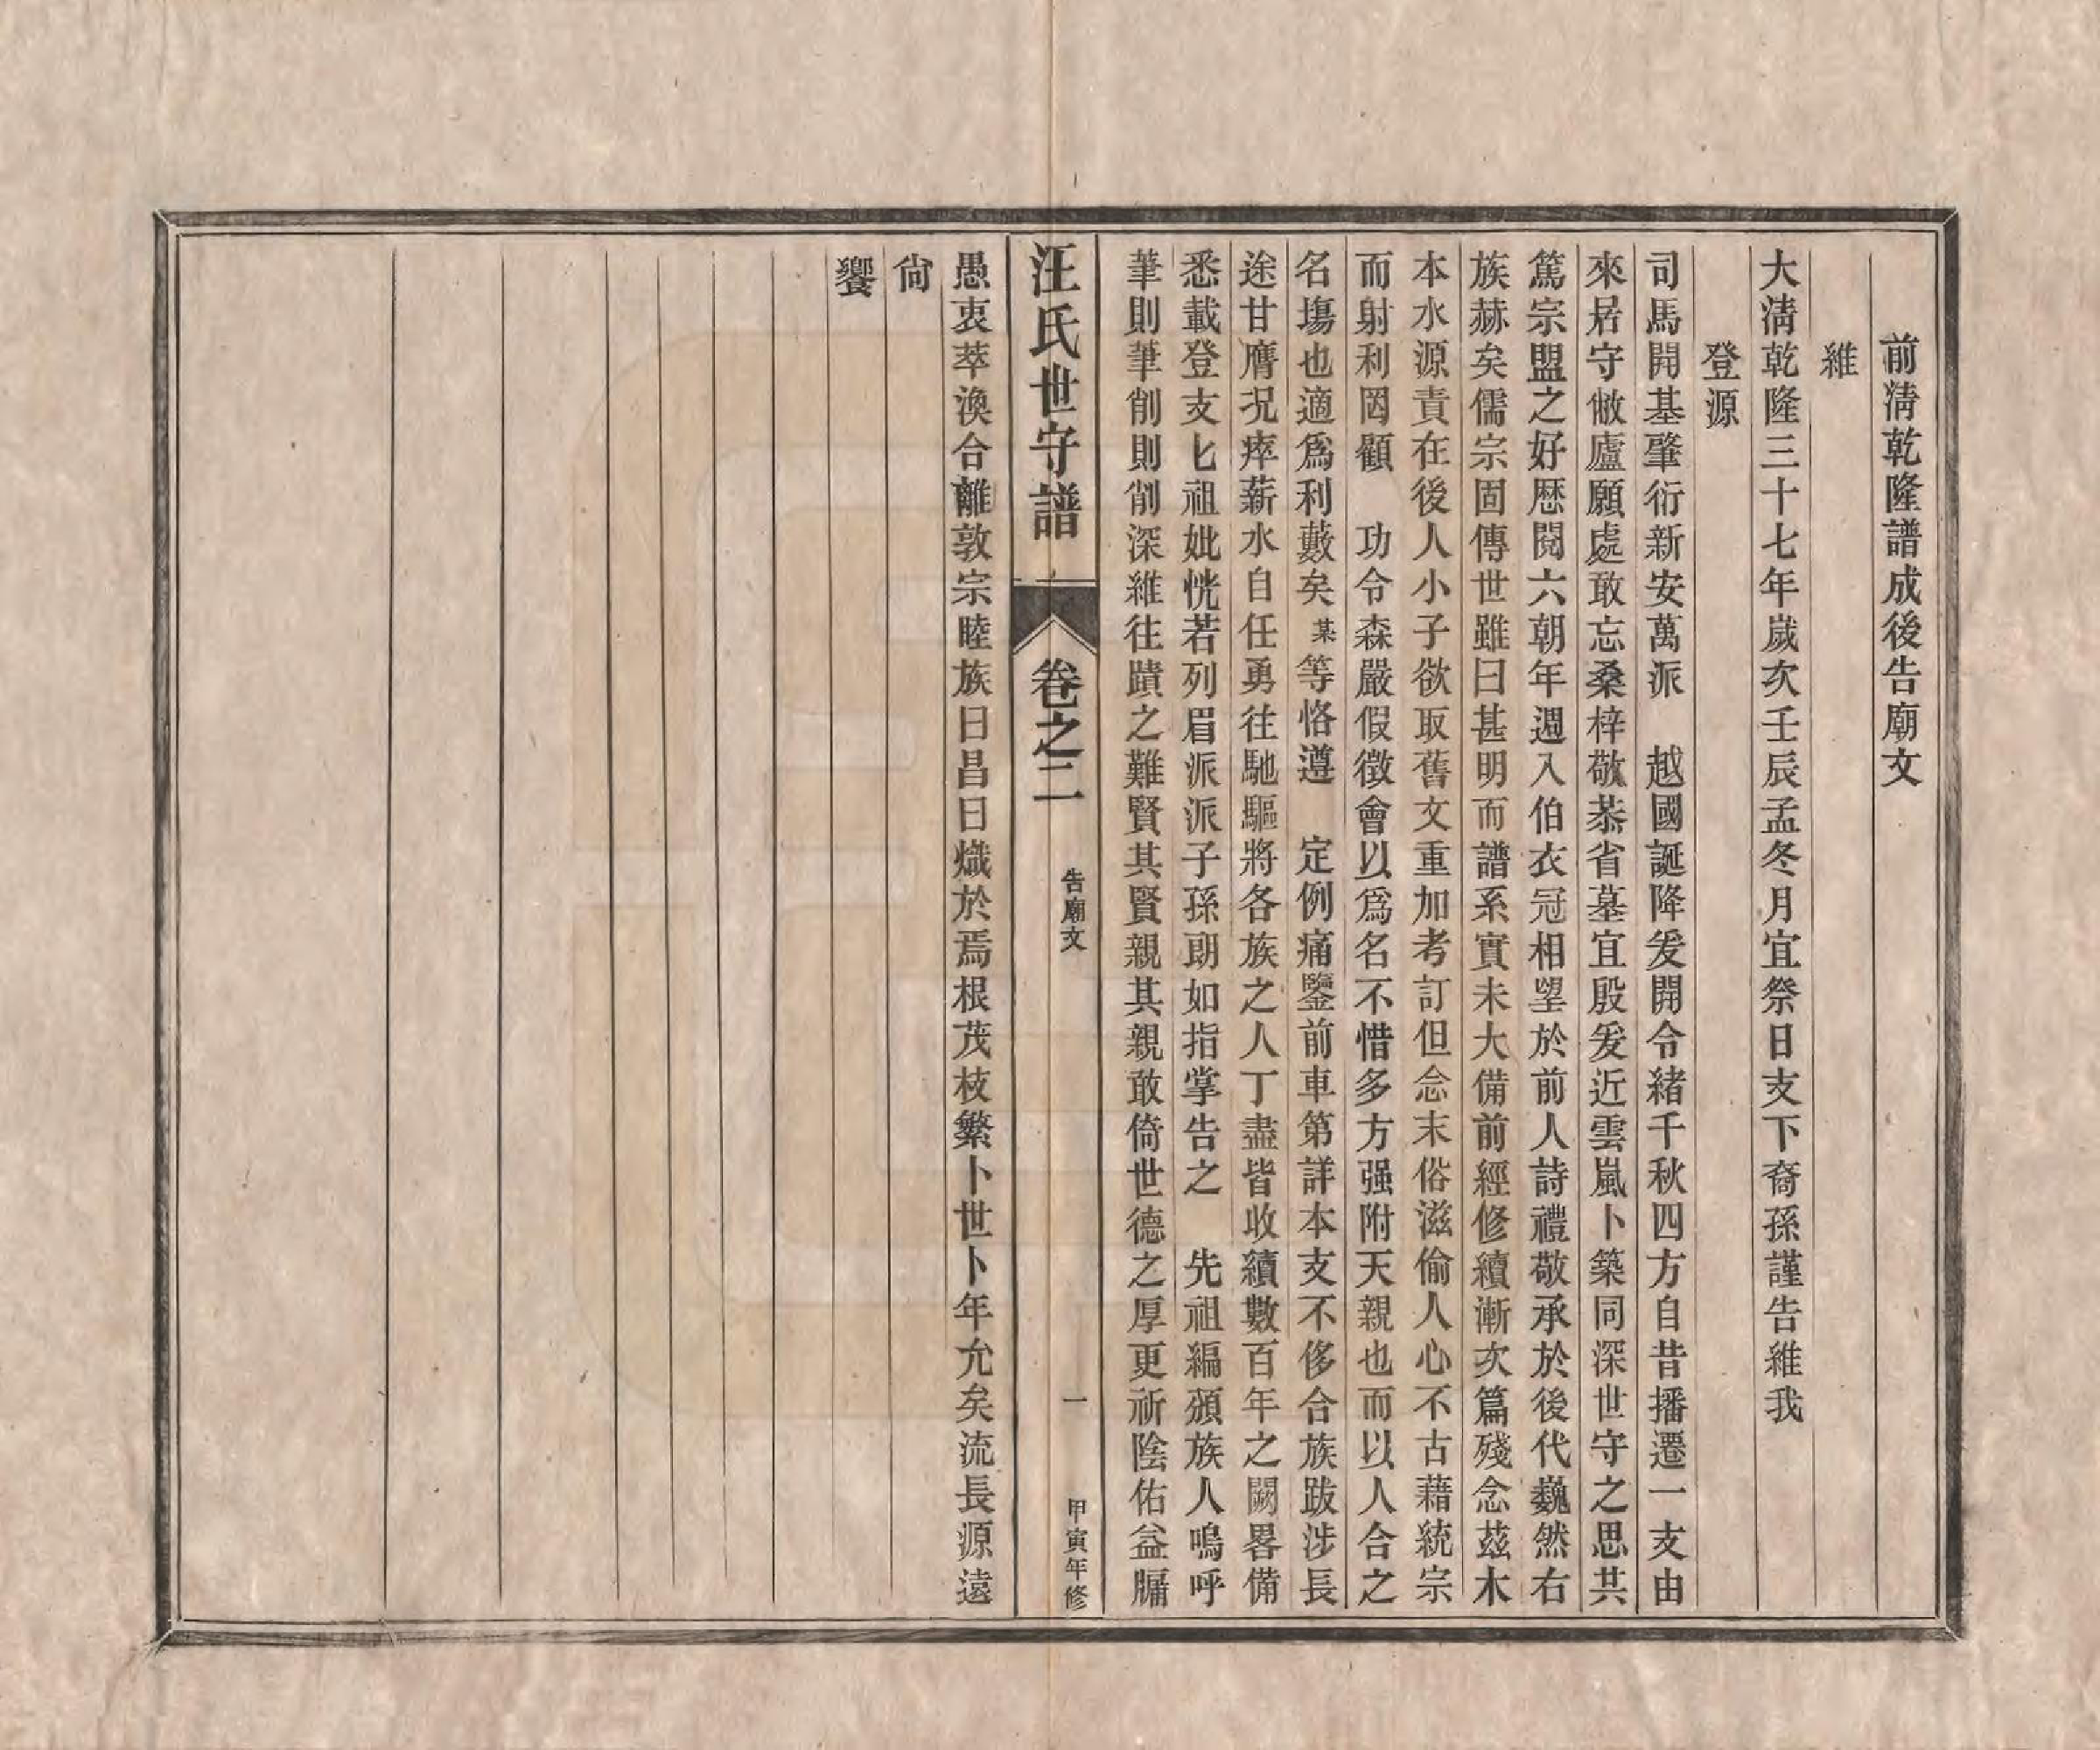 前淸乾隆譜成後告廟文
維
大淸乾隆三十七年歲次壬辰孟冬月宜祭日支下裔孫謹告維我
登源
司馬開基肇衍新安萬派　越國誕降爰開令緒千秋四方自昔播遷一支由
來居守敝廬願處敢忘桑梓敬恭省墓宜殷爰近雲嵐卜築同深世守之思共
篤宗盟之好歷閱六朝年週入伯衣冠相望於前人詩禮敬承於後代巍然右
族赫矣儒宗固傳世雖曰甚明而譜系實未大備前經修續漸次篇殘念茲木
本水源責在後人小子欲取舊文重加考訂但念末俗滋偷人心不古藉統宗
而射利罔顧　功令森嚴假徵會以爲名不惜多方强附天親也而以人合之
名塲也適爲利藪矣某等恪遵　定例痛鑒前車第詳本支不侈合族跋涉長
途甘膺況瘁薪水自任勇往馳驅將各族之人丁盡皆收續數百年之闕畧備
悉載登支匕祖妣恍若列眉派派子孫朗如指掌告之　先祖編頒族人嗚呼
筆則筆削則削深維往蹟之難賢其賢親其親敢倚世德之厚更祈陰佑益牖
汪氏世守譜　卷之二　告廟文　一　甲寅年修
愚衷萃渙合離敦宗睦族日昌日熾於焉根茂枝繁卜世卜年允矣流長源遠
尙
饗